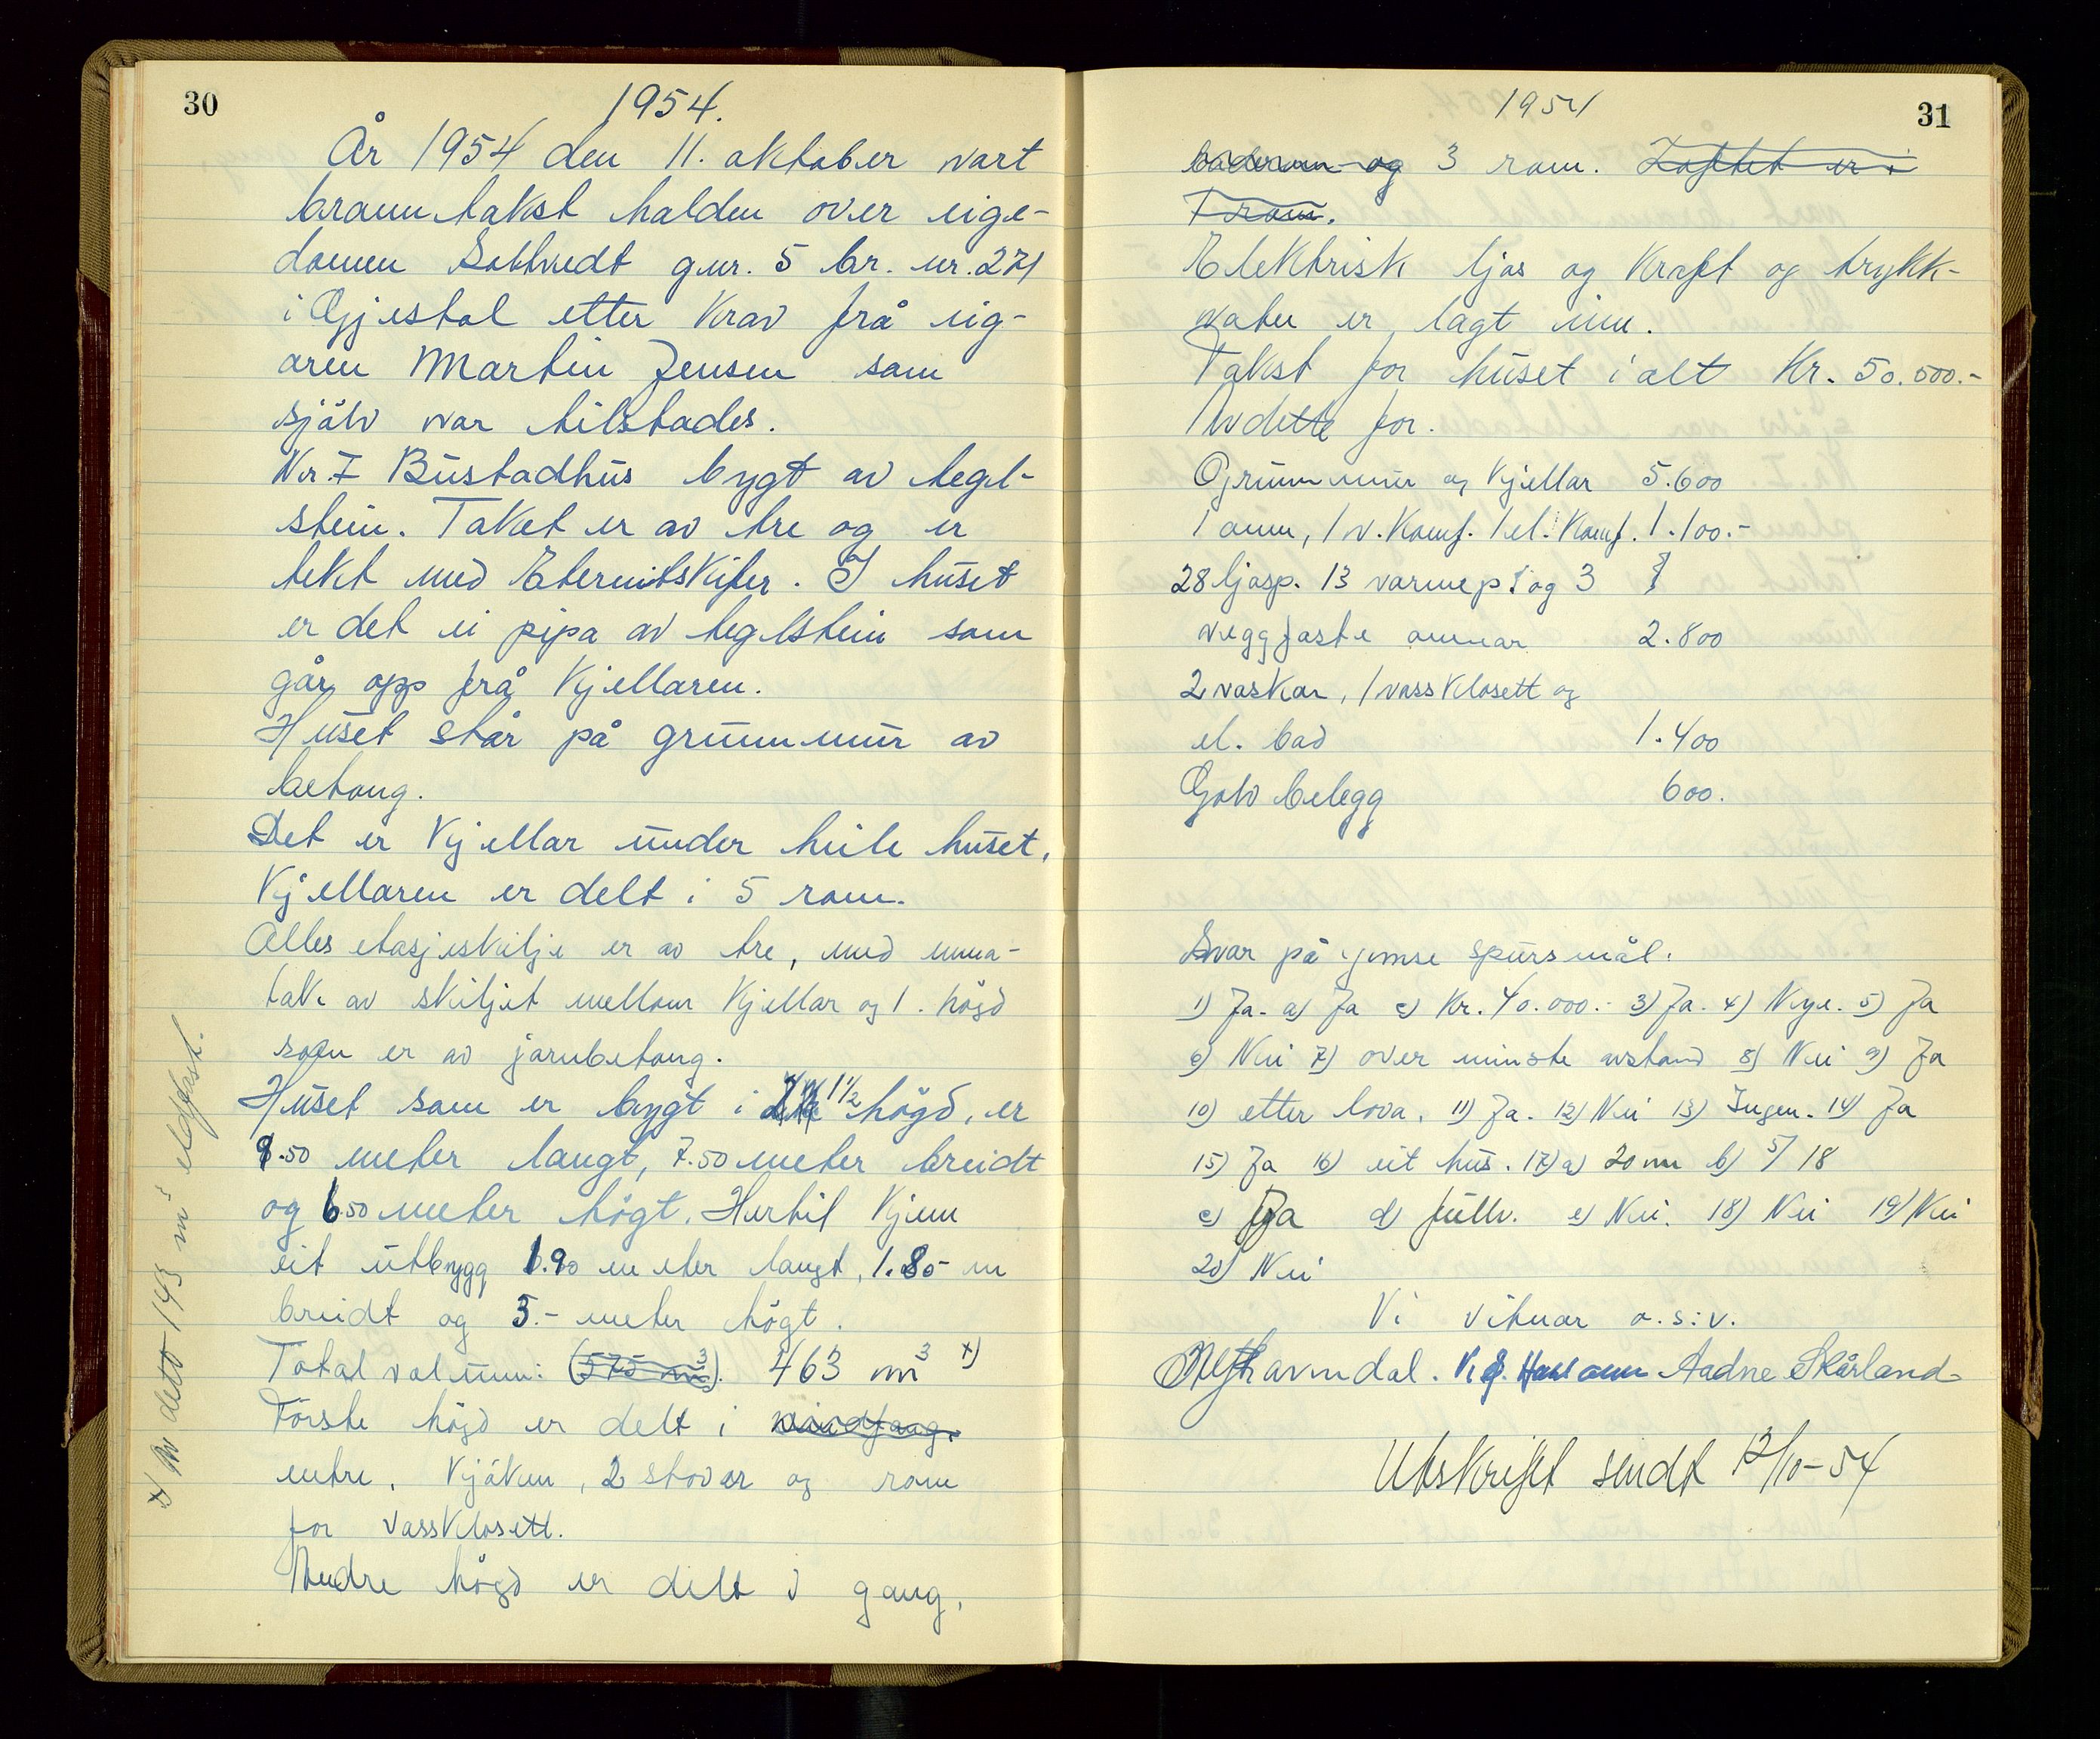 30
1954.
År 1954 den 11. oktober vart
branntakst halden over eige-
domen Soltvedt gnr. 5 br. nr. 274
i Gjestal etter krav frå eig-
aren Martin Jensen som
själv var tilstades.
Nr. I Bustadhus bygt av tegl-
stein. Taket er av tre og er
tekt med Eternitskifer. I huset
er det ei pipa av teglstein som
går opp frå kjellaren.
Huset står på grunnmur av
betong.
Det er kjellar under heile huset,
kjellaren er delt i 5 rom.
Alles etasjeskilje er av tre, med unna-
tak av skiljet mellom kjellar og 1. høgd
som er av jarnbetong.
Huset som er bygt i 1½ høgd, er
9.50 meter langt, 7.50 meter breidt
og 6.50 meter högt. Hertil kjem
eit utbygg 1.90 meter langt, 1.80 m
breidt og 5.- meter högt.
Total volum: (575 m³). 463 m³ x)
Förste högd er delt i vindfang,
entre, kjöken, 2 stover og rom
for vassklosett.
Andre högd er delt i gang,
x) Av dette 143 m³ eldfast.
1954
31
baderom og 3 rom. Loftet er i
1 rom.
Elektrisk ljos og kraft og trykk-
vatn er lagt inn.
Takst for huset i alt Kr. 50.500.-
Av dette for.
Grunnmur og kjellar 5.600
1 omn, 1 v. komf. 1 el. komf. 1.100.-
28 ljosp. 13 varmep. og 3
veggfaste omnar 2.800
2 vaskar, 1 vassklosett og
el. bad 1.400
Golvbelegg 600.
Svar på ymse spursmål.
1) Ja. a) Ja c) Kr. 40.000.- 3) Ja. 4) Nye. 5) Ja
6) Nei 7) over minste avstand 8) Nei 9) Ja
10) etter lova. 11) Ja. 12) Nei 13) Ingen. 14) Ja
15) Ja 16) eit hus. 17) a) 20 m b) 5/18
c) Ja d) fullv. e) Nei. 18) Nei 19) Nei
20) Nei
Vi vitnar o.s.v.
Ravndal. Aadne Skårland
Utskrift sendt 12/10-54